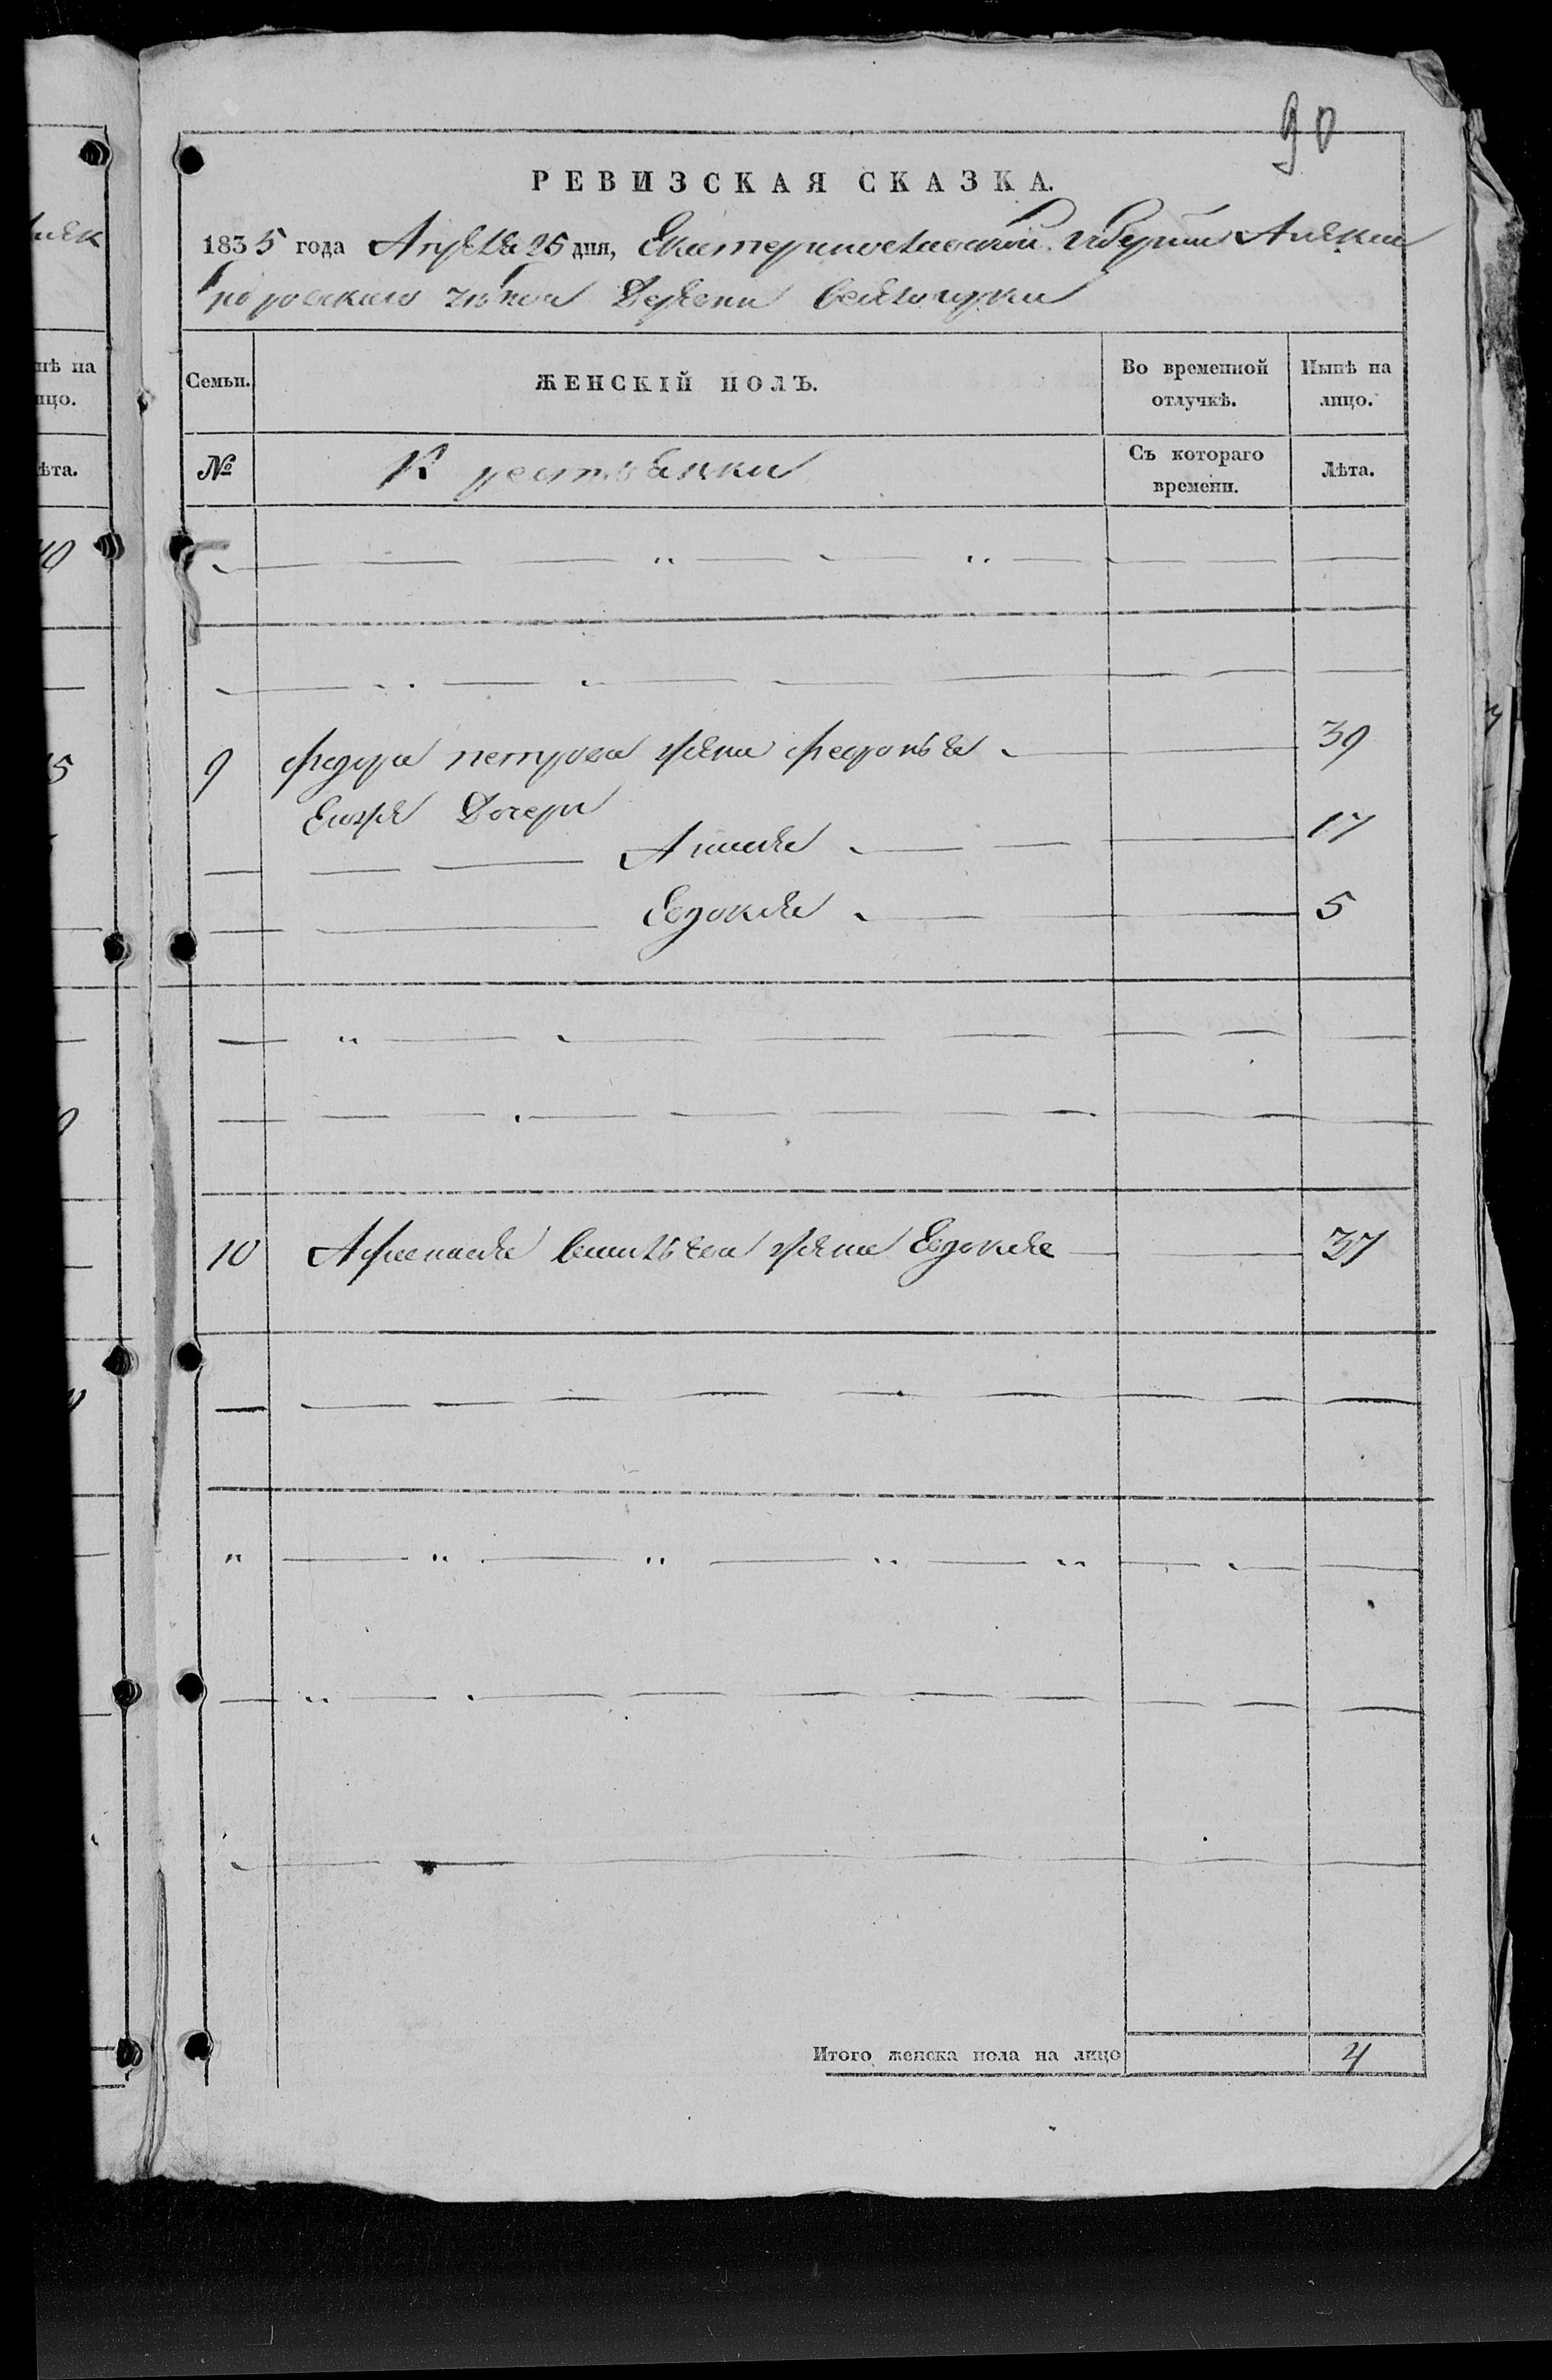 90
РЕВИЗСКАЯ СКАЗКА.
1835 года Апреля 25 дня, Екатеринославской Губернии Алексан
дровскаго Деревни
Семьи. ЖЕНСКІЙ ПОЛЪ. Во временной отлучкѣ. Нынѣ на лицо.
№ Крестьянки Съ котораго времени. Лѣта.
9 Федора Петрова жена Февронья 39
Его же дочери
Анисья 17
Евдокия 5
10 Афанасия Васильева жена Евдокия 37
Итого женска пола на лицо 4
нѣ на
ицо.
ѣта.